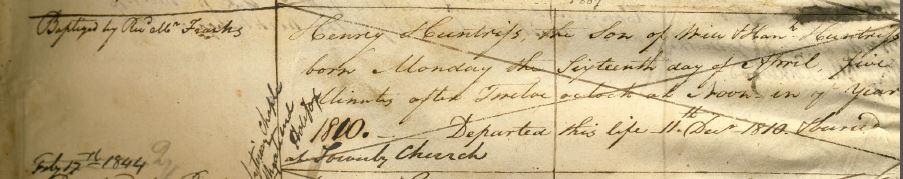 Baptized by Revd Mr. Franks
Henry Huntriss, the Son of Will & Hanh Huntriss
born Monday the Sixteenth day of April, five
Minutes after Twelve oclock at Noon in ye Year
1810. — Departed this life 11th Decr 1810 Buried
at Sowerby Church
Feby 17th 1844